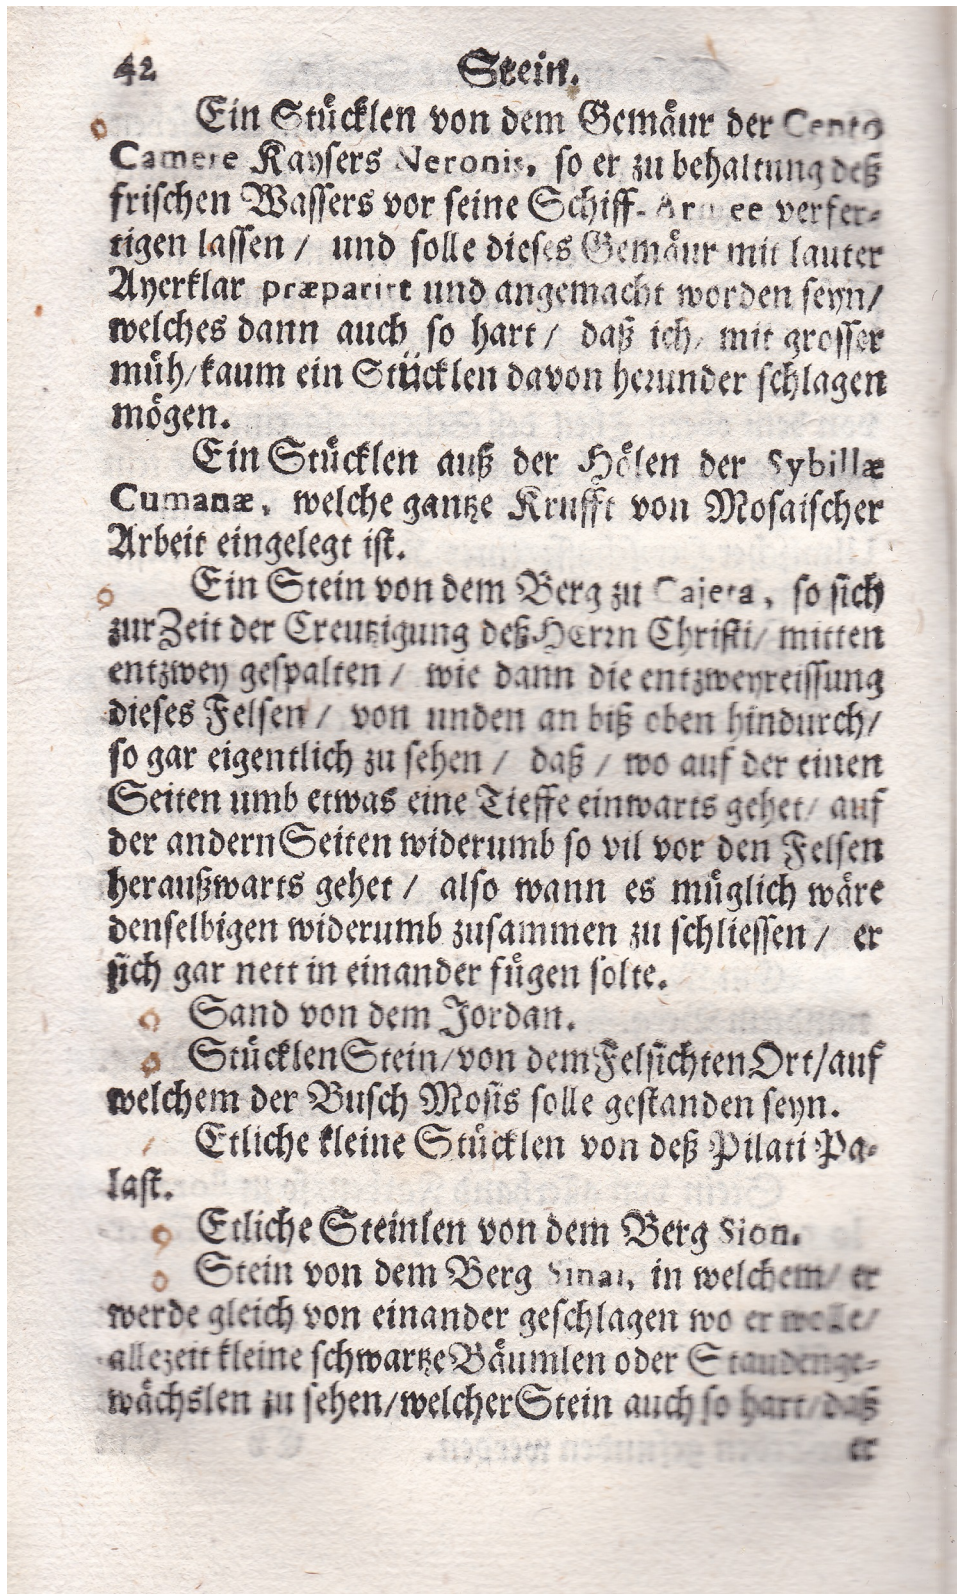 42 Stein.
Ein Stůcklen von dem Gemåur der Cento
Camere Kaysers Neronis, so er zu behaltung deß
frischen Wassers vor seine Schiff-Armee verfer-
tigen lassen / und solle dieses Gemåur mit lauter
Ayerklar præparirt und angemacht worden seyn/
welches dann auch so hart / daß ich/ mit grosser
můh/kaum ein Stücklen davon herunder schlagen
mȯgen.
Ein Stůcklen auß der Hölen der Sybillæ
Cumanæ, welche gantze Krufft von Mosaischer
Arbeit eingelegt ist.
Ein Stein von dem Berg zu Cajeta, so sich
zur Zeit der Creutzigung deß HErrn Christi/ mitten
entzwey gespalten / wie dann die entzweyreissung
dieses Felsen / von unden an biß oben hindurch/
so gar eigentlich zu sehen / daß / wo auf der einen
Seiten umb etwas eine Tieffe einwarts gehet/ auf
der andern Seiten widerumb so vil vor den Felsen
heraußwarts gehet / also wann es můglich wåre
denselbigen widerumb zusammen zu schliessen / er
sich gar nett in einander fůgen solte.
Sand von dem Jordan.
Stůcklen Stein/von dem Felsichten Ort/auf
welchem der Busch Mosis solle gestanden seyn.
Etliche kleine Stůcklen von deß Pilati Pa-
last.
Etliche Steinlen von dem Berg Sion.
Stein von dem Berg Sinai, in welchem/ er
werde gleich von einander geschlagen wo er wolle/
allezeit kleine schwartze Båumlen oder Staudenge-
wåchslen zu sehen/welcher Stein auch so hart/daß
er